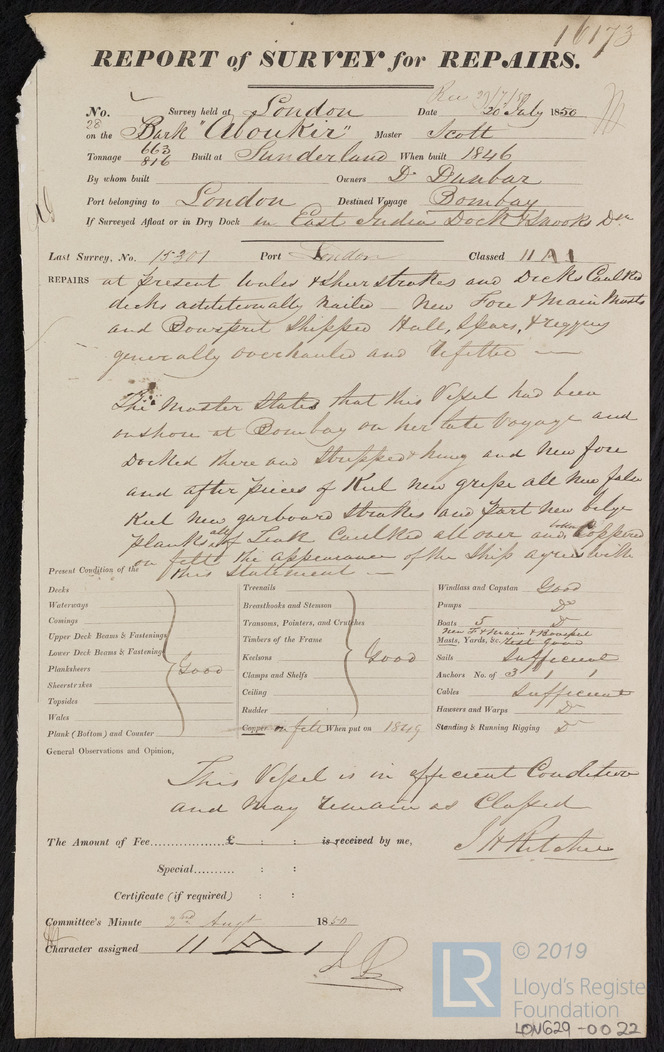 16173
REPORT of SURVEY for REPAIRS.
Rec 29/7/50
No. Survey held at London Date 20 July 1850
28
on the Bark "Aboukir" Master Scott
Tonnage 663 816 Built at Sunderland When built 1846
By whom built Owners D. Dunbar
Port belonging to London Destined Voyage Bombay
If Surveyed Afloat or in Dry Dock in East India Dock & Snooks Do
Last Survey, No. 15301 Port London Classed 11 A 1
REPAIRS at present Wales & sheerstrakes and Decks Caulked
decks additionally nailed - New Fore & Main Masts
and Bowsprit Shipped Hull, Spars, & rigging
generally overhauled and refitted -
The Master States that this Vessel had been
onshore at Bombay on her late Voyage and
Docked there and Stripped & hung and New fore
and after pieces of Keel new gripe all New false
Keel New garboard Strakes and part New bilge
planks also of Teak Caulked all over and Coppered
on felt the appearance of the Ship agrees with
this Statement -
Present Condition of the
Decks
Waterways
Comings
Upper Deck Beams & Fastenings
Lower Deck Beams & Fastenings
Planksheers Good
Sheerstrakes
Topsides
Wales
Plank (Bottom) and Counter
Treenails
Breasthooks and Stemson
Transoms, Pointers, and Crutches
Timbers of the Frame
Keelsons Good
Clamps and Shelfs
Ceiling
Rudder
Copper on felt When put on 1849
Windlass and Capstan Good
Pumps Do
Boats 5 Do
New F & Main & Bowsprit
Masts, Yards, &c. rest good
Sails Sufficient
Anchors No. of 3 1 1
Cables Sufficient
Hawsers and Warps Do
Standing & Running Rigging Do
General Observations and Opinion,
This Vessel is in efficient Condition
and May remain as Classed
The Amount of Fee £ : : is received by me,
J H Ritchie
Special : :
Certificate (if required) : :
Committee's Minute 2nd Augt 1850
Character assigned 11 A 1
LR
© 2019
Lloyd's Register
Foundation
LON629-0022